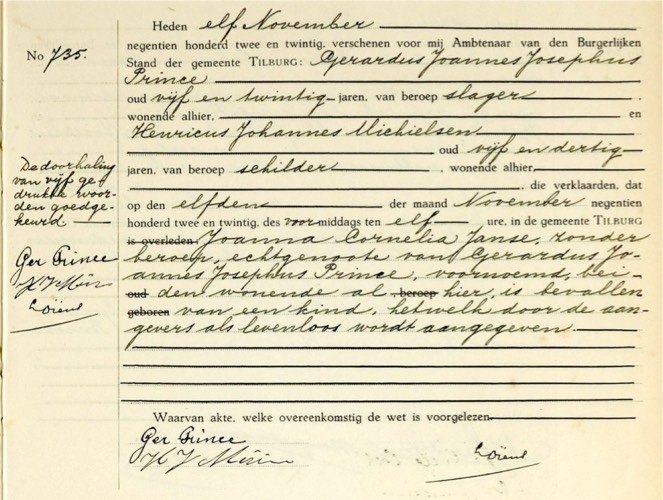 Heden elf November
No 735.
negentien honderd twee en twintig, verschenen voor mij Ambtenaar van den Burgerlijken
Stand der gemeente TILBURG: Gerardus Joannes Josephus
Prince
oud vijf en twintig jaren, van beroep slager
wonende alhier, en
Henricus Johannes Michielsen
oud vijf en dertig
jaren, van beroep schilder, wonende alhier,
, die verklaarden, dat
op den elfden der maand November negentien
honderd twee en twintig, des voormiddags ten elf ure, in de gemeente TILBURG
is overleden Joanna Cornelia Janse, zonder
beroep, echtgenoote van Gerardus Jo-
annes Josephus Prince, voornoemd, bei-
oud den wonende al beroep hier, is bevallen
geboren van een kind, hetwelk door de aan-
gevers als levenloos wordt aangegeven.
De doorhaling
van vijf ge-
drukte woor-
den goedge-
keurd
Ger Prince
Waarvan akte, welke overeenkomstig de wet is voorgelezen.
Ger Prince